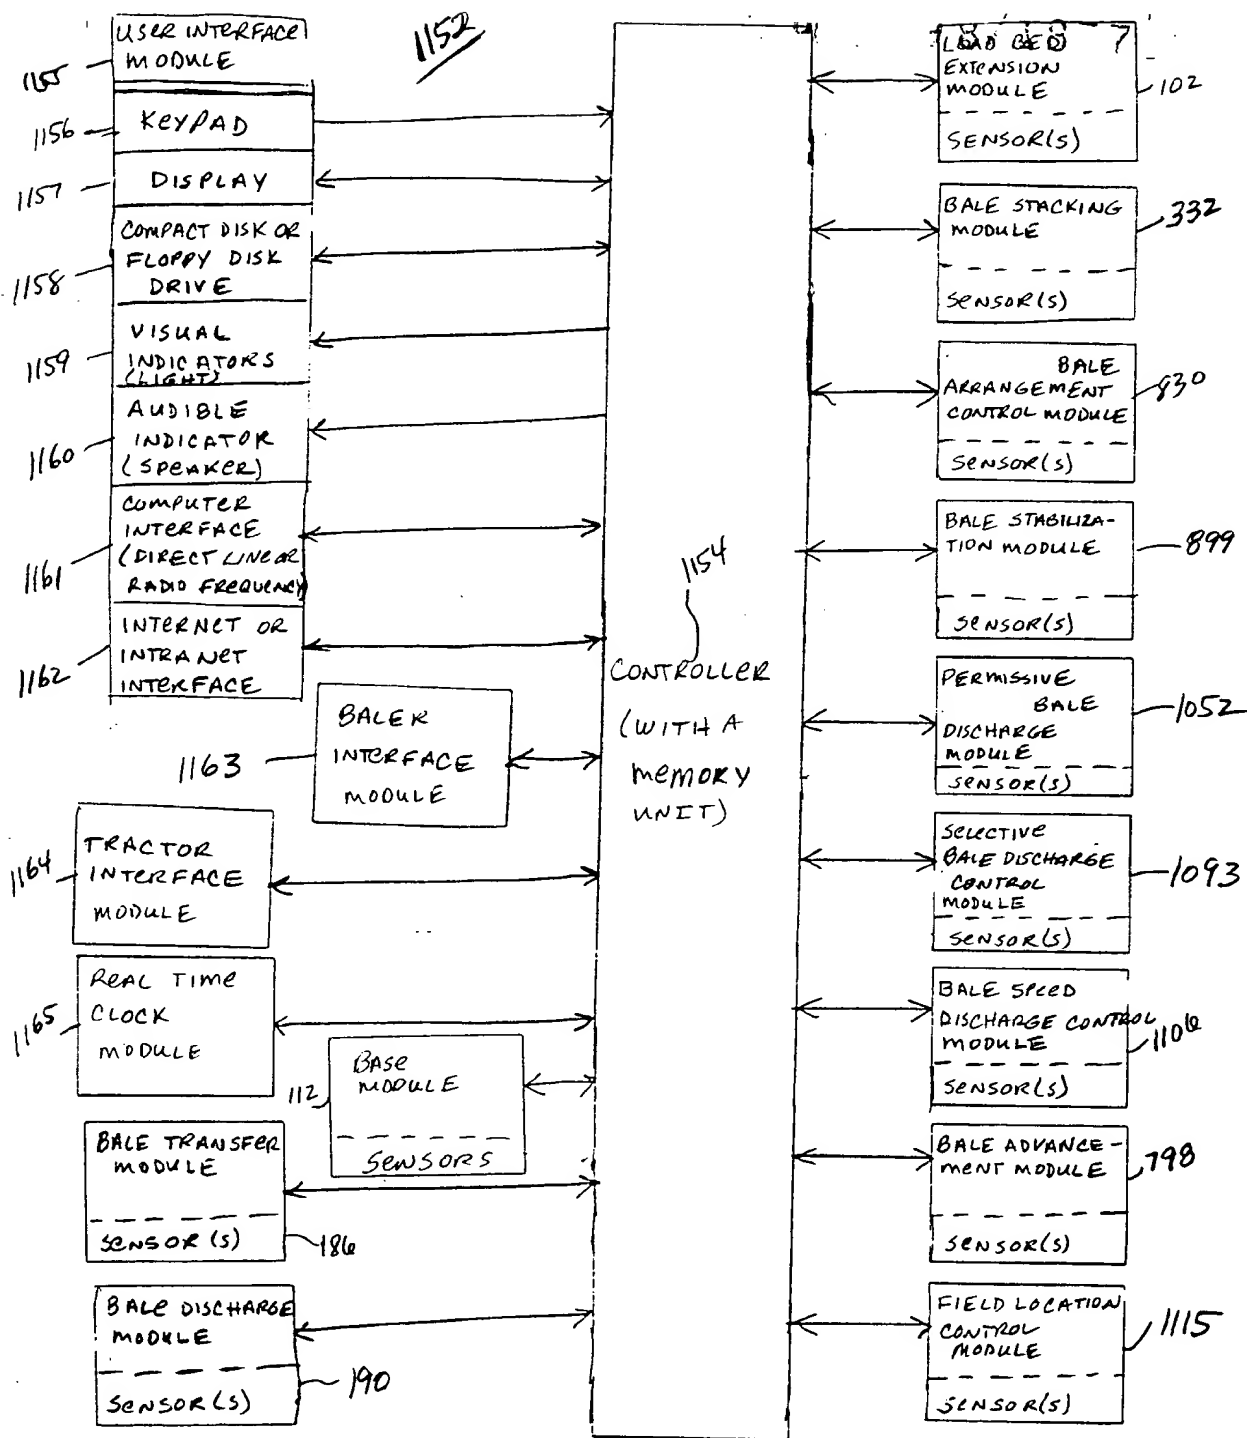 1152
USER INTERFACE
MODULE
1155
KEYPAD
1156
DISPLAY
1157
COMPACT DISK OR
FLOPPY DISK
DRIVE
1158
VISUAL
INDICATORS
(LIGHT)
1159
AUDIBLE
INDICATOR
(SPEAKER)
1160
COMPUTER
INTERFACE
(DIRECT LINE OR
RADIO FREQUENCY)
1161
INTERNET OR
INTRANET
INTERFACE
1162
BALER
INTERFACE
MODULE
1163
TRACTOR
INTERFACE
MODULE
1164
REAL TIME
CLOCK
MODULE
1165
BASE
MODULE
SENSORS
112
BALE TRANSFER
MODULE
SENSOR(S)
186
BALE DISCHARGE
MODULE
SENSOR(S)
190
1154
CONTROLLER
(WITH A
MEMORY
UNIT)
LOAD BED
EXTENSION
MODULE
SENSOR(S)
102
BALE STACKING
MODULE
SENSOR(S)
332
BALE
ARRANGEMENT
CONTROL MODULE
SENSOR(S)
830
BALE STABILIZA-
TION MODULE
SENSOR(S)
899
PERMISSIVE
BALE
DISCHARGE
MODULE
SENSOR(S)
1052
SELECTIVE
BALE DISCHARGE
CONTROL
MODULE
SENSOR(S)
1093
BALE SPEED
DISCHARGE CONTROL
MODULE
SENSOR(S)
1106
BALE ADVANCE-
MENT MODULE
SENSOR(S)
798
FIELD LOCATION
CONTROL
MODULE
SENSOR(S)
1115